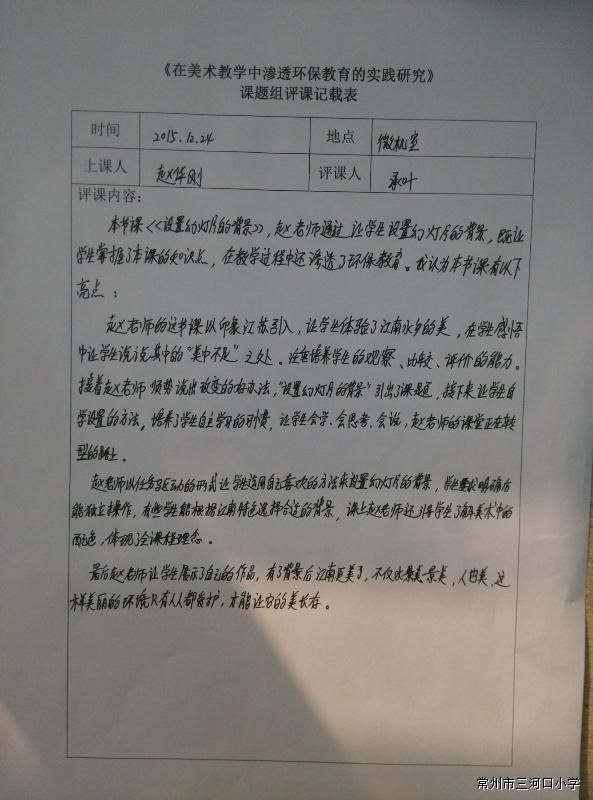 《在美术教学中渗透环保教育的实践研究》
课题组评课记载表
时间 2015.12.24 地点 微机室
上课人 赵华刚 评课人 承叶
评课内容：
本节课<<设置幻灯片的背景>>，赵老师通过让学生设置幻灯片的背景，既让
学生掌握了本课的知识点，在教学过程中还渗透了环保教育。我认为本节课有以下
亮点：
赵老师的这节课以印象江苏引入，让学生体验了江南水乡的美，在学生感悟
中让学生说说其中的“美中不足”之处。注重培养学生的观察、比较、评价的能力。
接着赵老师顺势说出改变的好办法，“设置幻灯片的背景”引出了课题，接下来让学生自
学设置的方法，培养了学生自主学习的习惯，让学生会学、会思考、会说，赵老师的课堂正在转
型的路上。
赵老师以任务驱动的形式让学生选用自己喜欢的方法来设置幻灯片的背景，学生要求明确后
能独立操作，有些学生能根据江南特色选择合适的背景，课上赵老师还引导学生了解美术中的
配色，体现了全课程理念。
最后赵老师让学生展示了自己的作品，有了背景后江南更美了，不仅水景美，人也美，这
样美丽的环境只有人人都爱护，才能让它的美长存。
常州市三河口小学